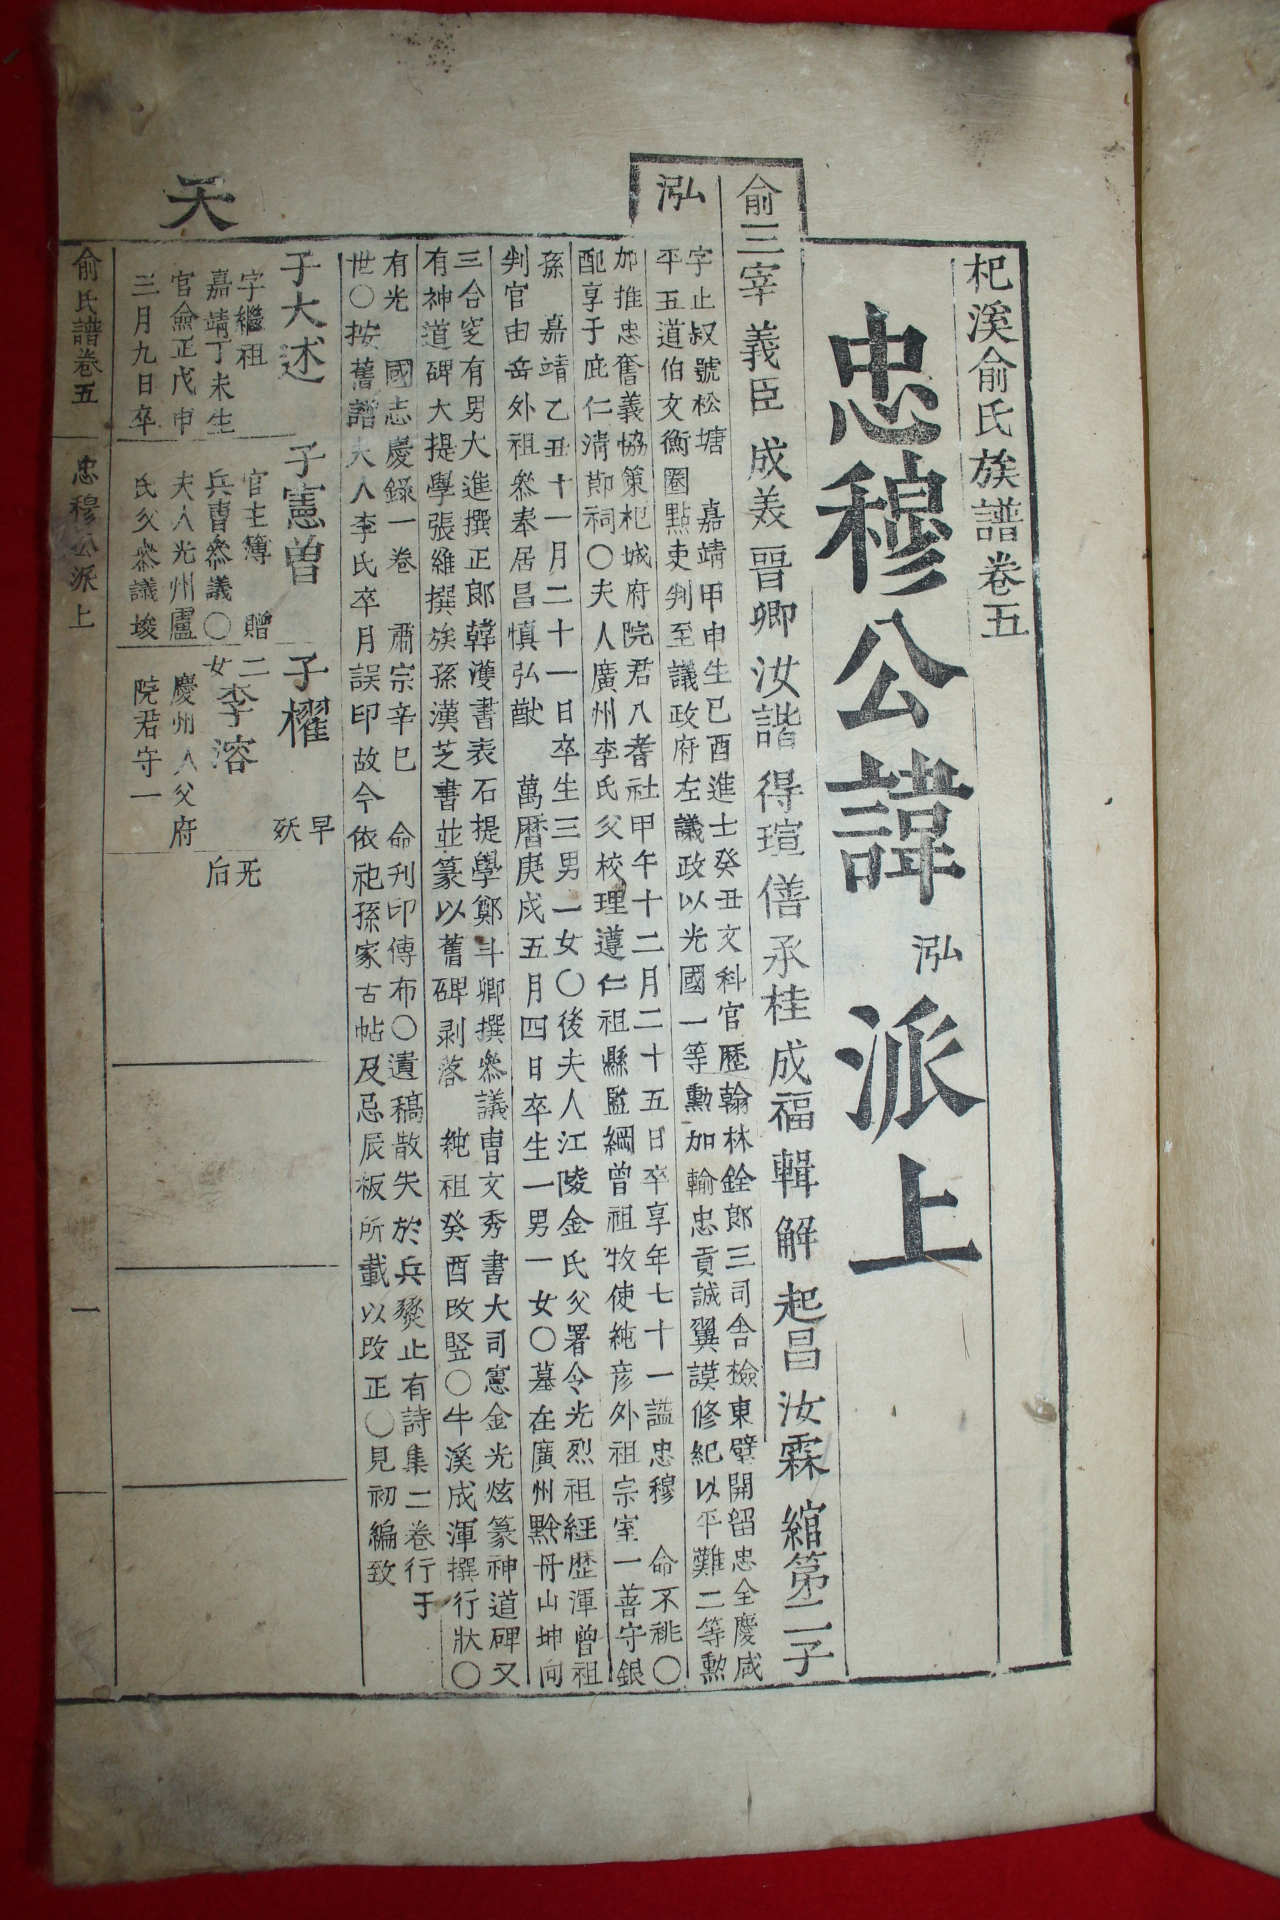 杞溪俞氏族譜卷五
忠穆公諱泓派上
俞三宰 義臣 成美 晋卿 汝諧 得瑄 僐 承桂 成福 輯 解 起昌 汝霖 綰第二子
泓
字止叔號松塘 嘉靖甲申生己酉進士癸丑文科官歷翰林銓郎三司舍檢東壁開留忠全慶咸
平五道伯文衡圈點吏判至議政府左議政以光國一等勳加輸忠貢誠翼謨修紀以平難二等勳
加推忠奮義恊策杞城府院君入耆社甲午十二月二十五日卒享年七十一謚忠穆 命不祧〇
配享于庇仁淸節祠〇夫人廣州李氏父校理遵仁祖縣監綱曾祖牧使純彦外祖宗室一善守銀
孫 嘉靖乙丑十一月二十一日卒生三男一女〇後夫人江陵金氏父署令光烈祖經歷渾曾祖
判官由岳外祖叅奉居昌愼弘猷 萬曆庚戌五月四日卒生一男一女〇墓在廣州黔丹山坤向
三合窆有男大進撰正郎韓濩書表石提學鄭斗卿撰叅議曺文秀書大司憲金光炫篆神道碑又
有神道碑大提學張維撰族孫漢芝書並篆以舊碑剥落 純祖癸酉改竪〇牛溪成渾撰行狀〇
有光 國志慶錄一卷 肅宗辛巳 命刋印傳布〇遺稿散失於兵燹止有詩集二卷行于
世〇按舊譜夫人李氏卒月誤印故今依祀孫家古帖及忌辰板所載以改正〇見初編致
子大述
字繼祖
嘉靖丁未生
官僉正戊申
三月九日卒
子憲曾
官主簿 贈
兵曺叅議〇
夫人光州盧
氏父叅議埈
子櫂 早
殀
二
女
李溶 无
后
慶州人父府
院君守一
天
俞氏譜卷五 忠穆公派上 一